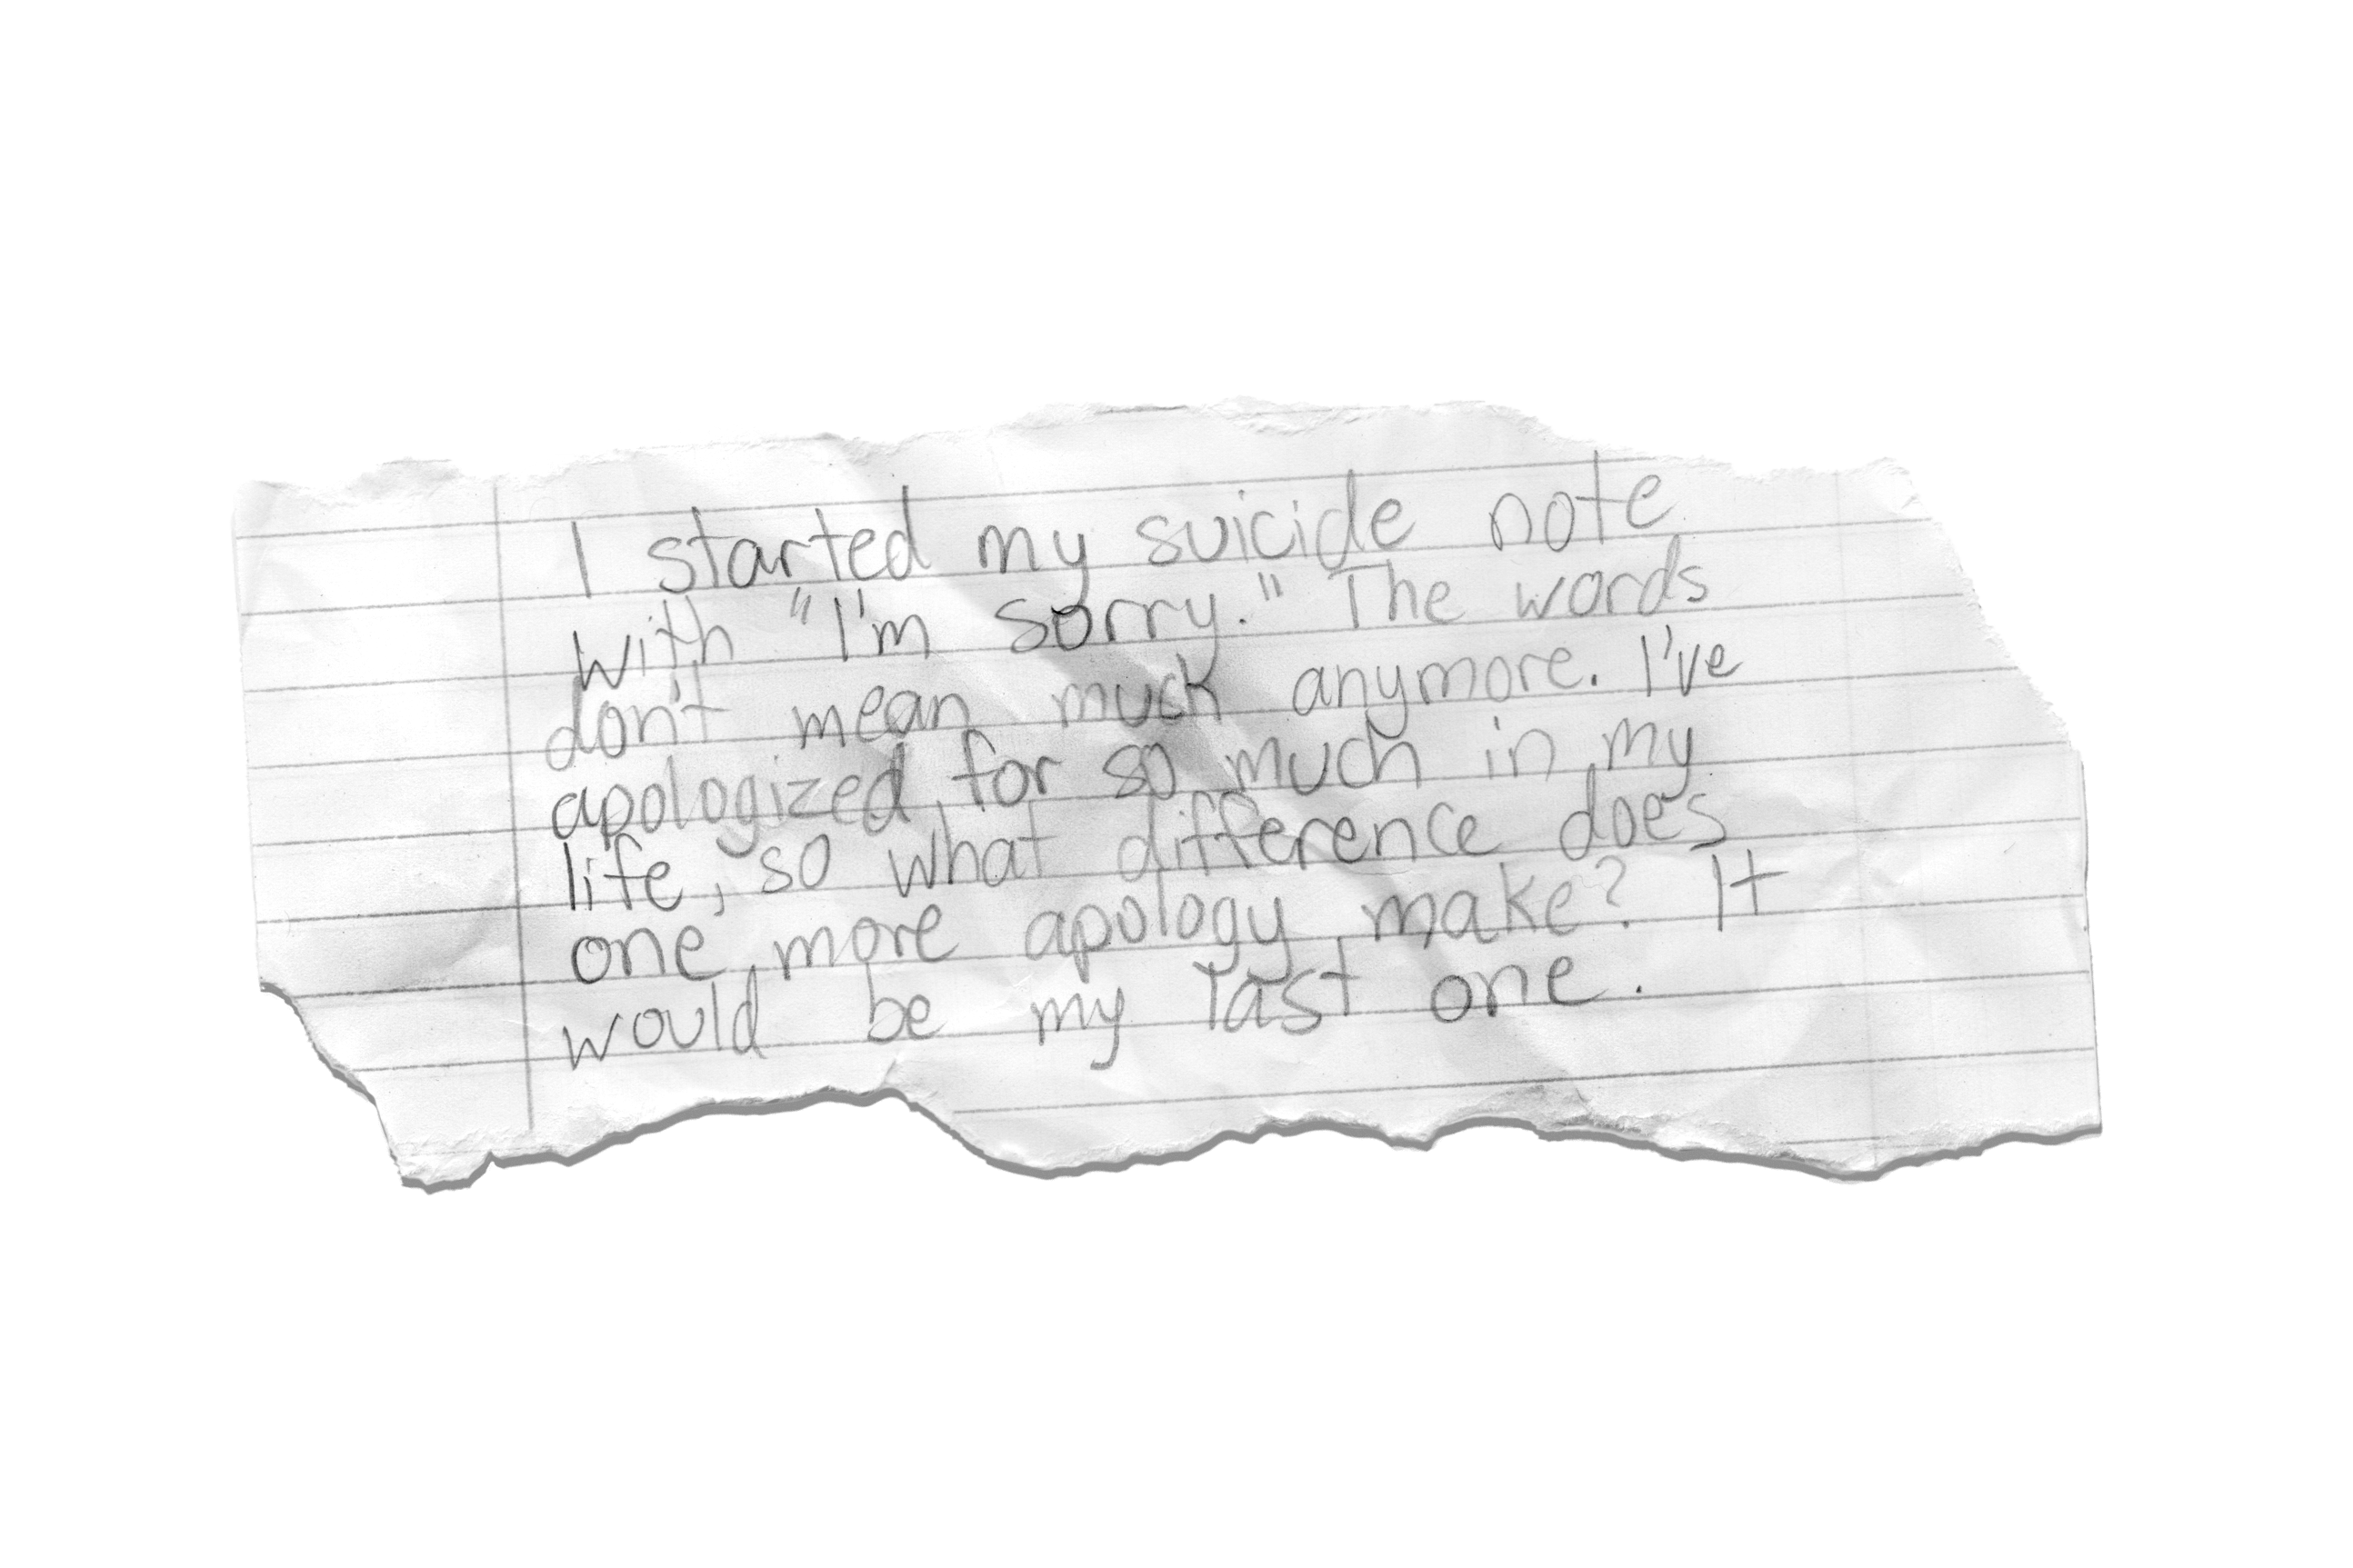 I started my suicide note
with "I'm sorry." The words
don't mean much anymore. I've
apologized for so much in my
life, so what difference does
one more apology make? It
would be my last one.